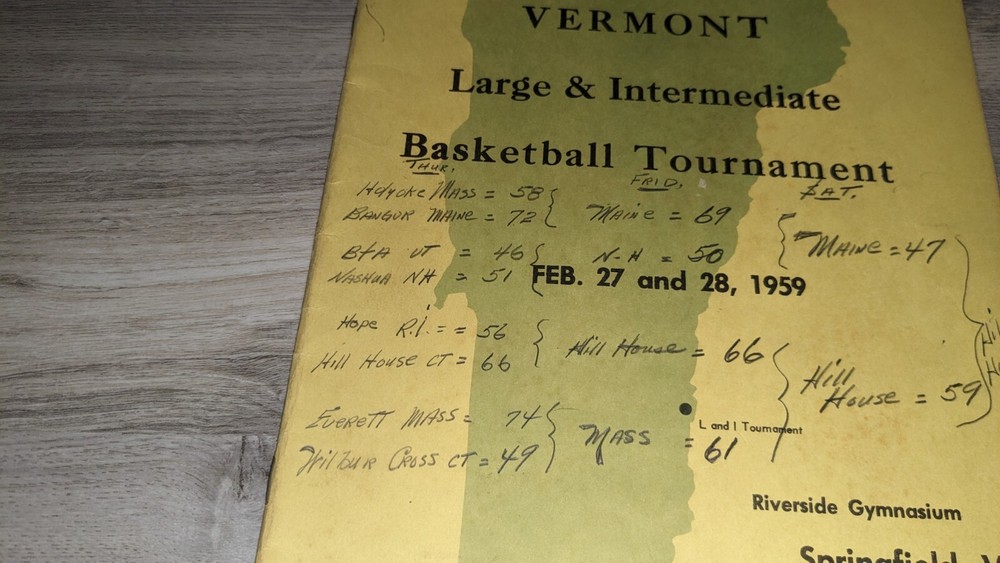 VERMONT
Large & Intermediate
Basketball Tournament
THUR. FRID. SAT.
Holyoke MASS = 58
BANGOR MAINE = 72 MAINE = 69
MAINE = 47
BFA VT = 46 N-H = 50
NASHUA NH = 51
FEB. 27 and 28, 1959
Hope R.I. = = 56
Hill House CT = 66 Hill House = 66
Hill House = 59
EVERETT MASS = 74
Wilbur Cross CT = 49 MASS = 61
L and I Tournament
Riverside Gymnasium
Springfield